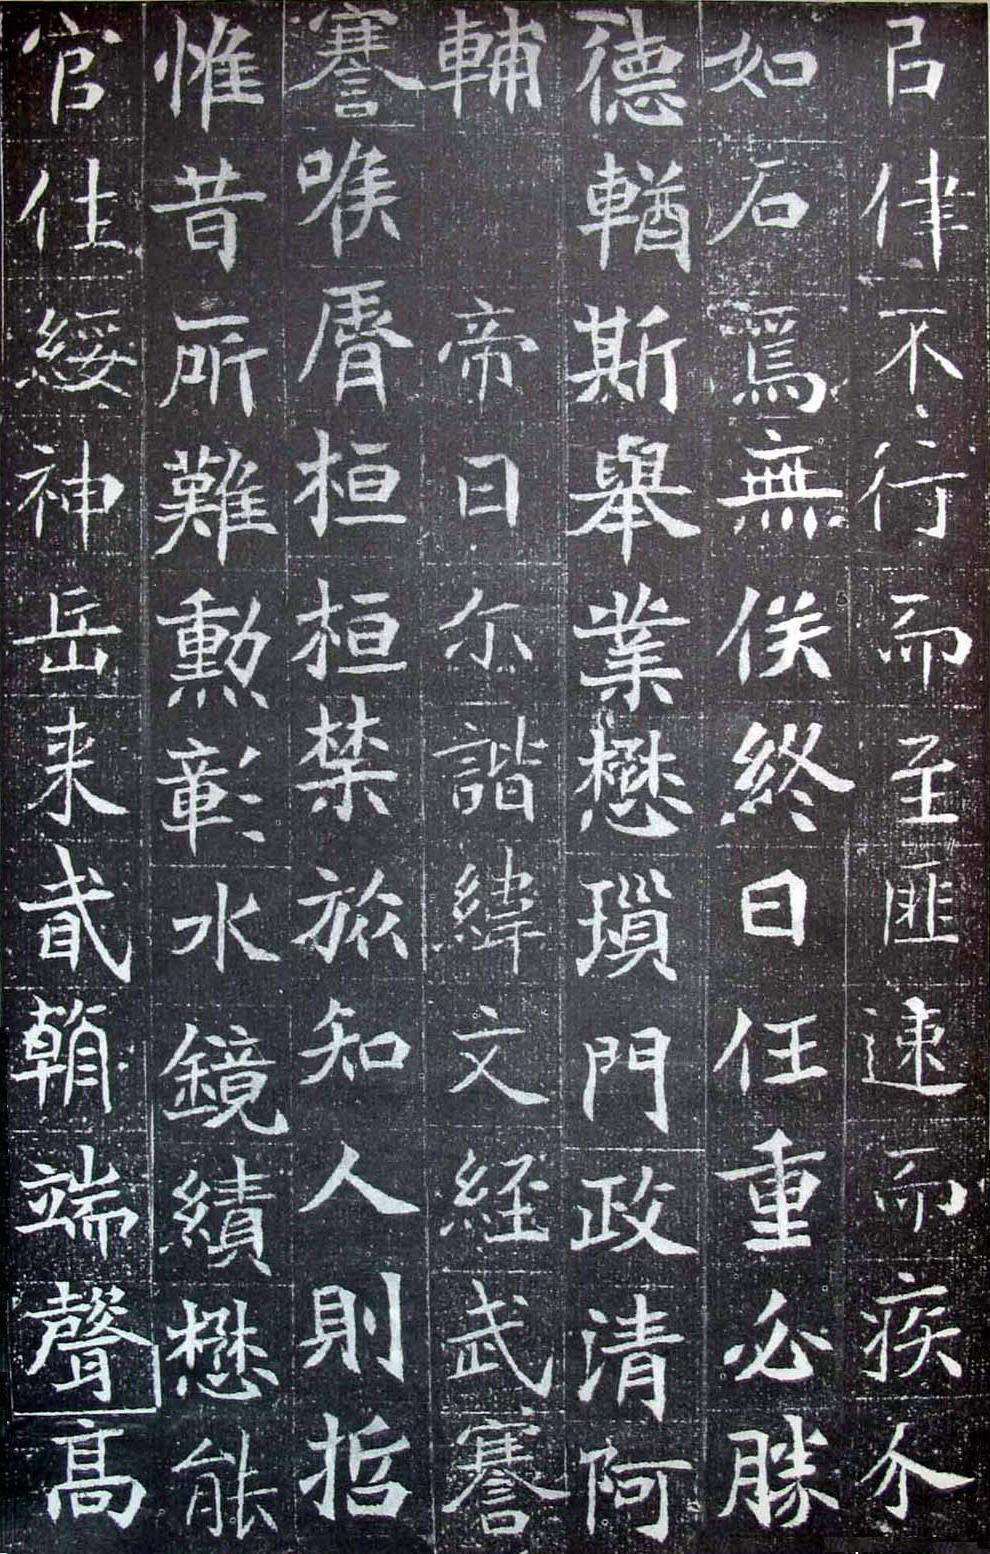 㠯律不行而至匪速而疾介
如石焉無俟終日任重必勝
德輶斯舉業懋瑣門政清阿
輔　帝曰尔諧緯文経武謇
謇喉脣桓桓禁旅知人則哲
惟昔所難勳彰水鏡績懋能
官往綏神岳来貳朝端聲高